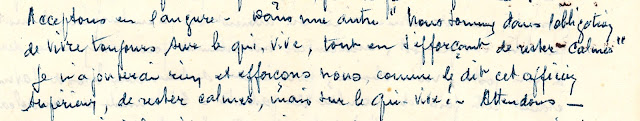 Acceptons en l'augure - Dans une autre "Nous sommes dans l'obligation
de vivre toujours sur le qui-vive, tout en s'efforçant de rester calmes"
Je n'ajouterai rien et efforçons nous, comme le dit cet officier
supérieur, de rester calmes, mais sur le qui-vive. Attendons -